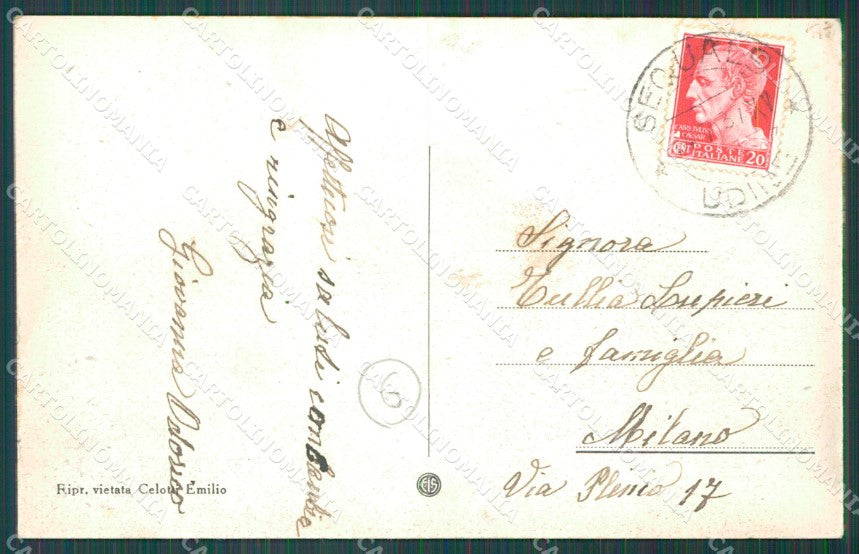 Affettuosi saluti contandia
e ringrazia
Giovanna Odorico
SEQUALS
UDINE
CAIVS IVLIVS
CAESAR
POSTE
ITALIANE
CENT 20
Signora
Tullia Lupieri
e famiglia
Milano
Via Plinio 17
6
Ripr. vietata Celotti Emilio
CARTOLINOMANIA